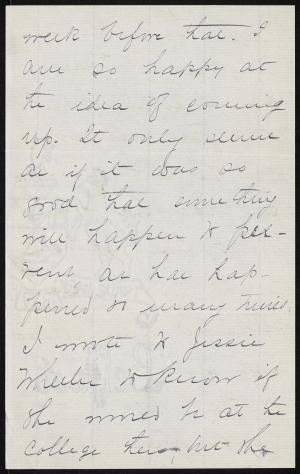 week before that. I
am so happy at
the idea of coming
up. It only seems
as if it was so
good that something
will happen to pre-
vent, as has hap-
pened so many times.
I wrote to Jessie
Wheeler to know if
she would be at the
College then, but she